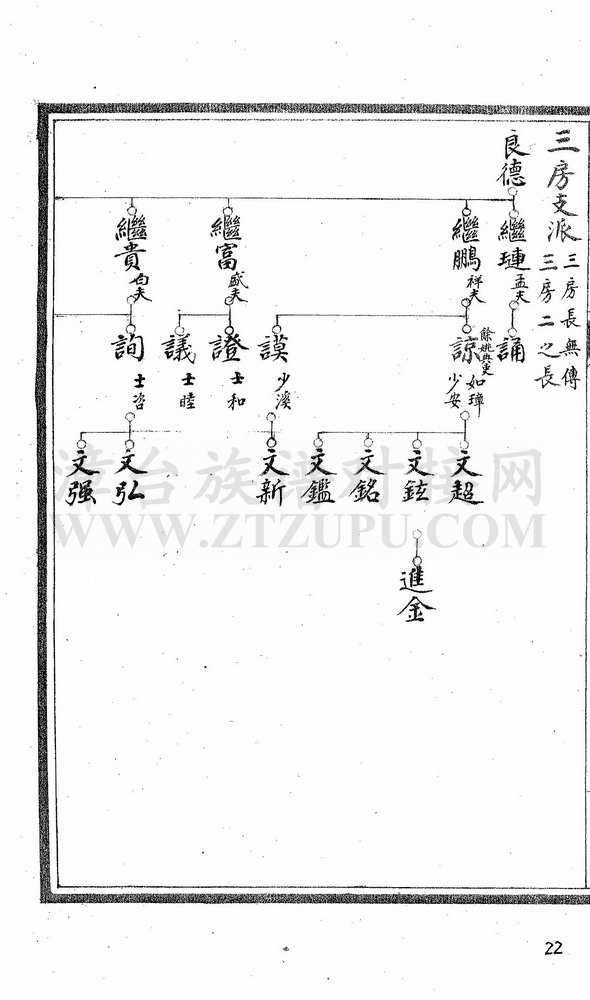 三房支派
三房長無傳
三房二之長
良德
繼璉 孟夫
繼鵬 祥夫
繼富 盛夫
繼貴 白夫
誦
諒 餘姚典史 如璋 少安
謨 少溪
證 士和
議 士睦
詢 士咨
文超
文鉉
文銘
文鑑
文新
文弘
文强
進金
漳台族谱对接网
WWW.ZTZUPU.COM
22